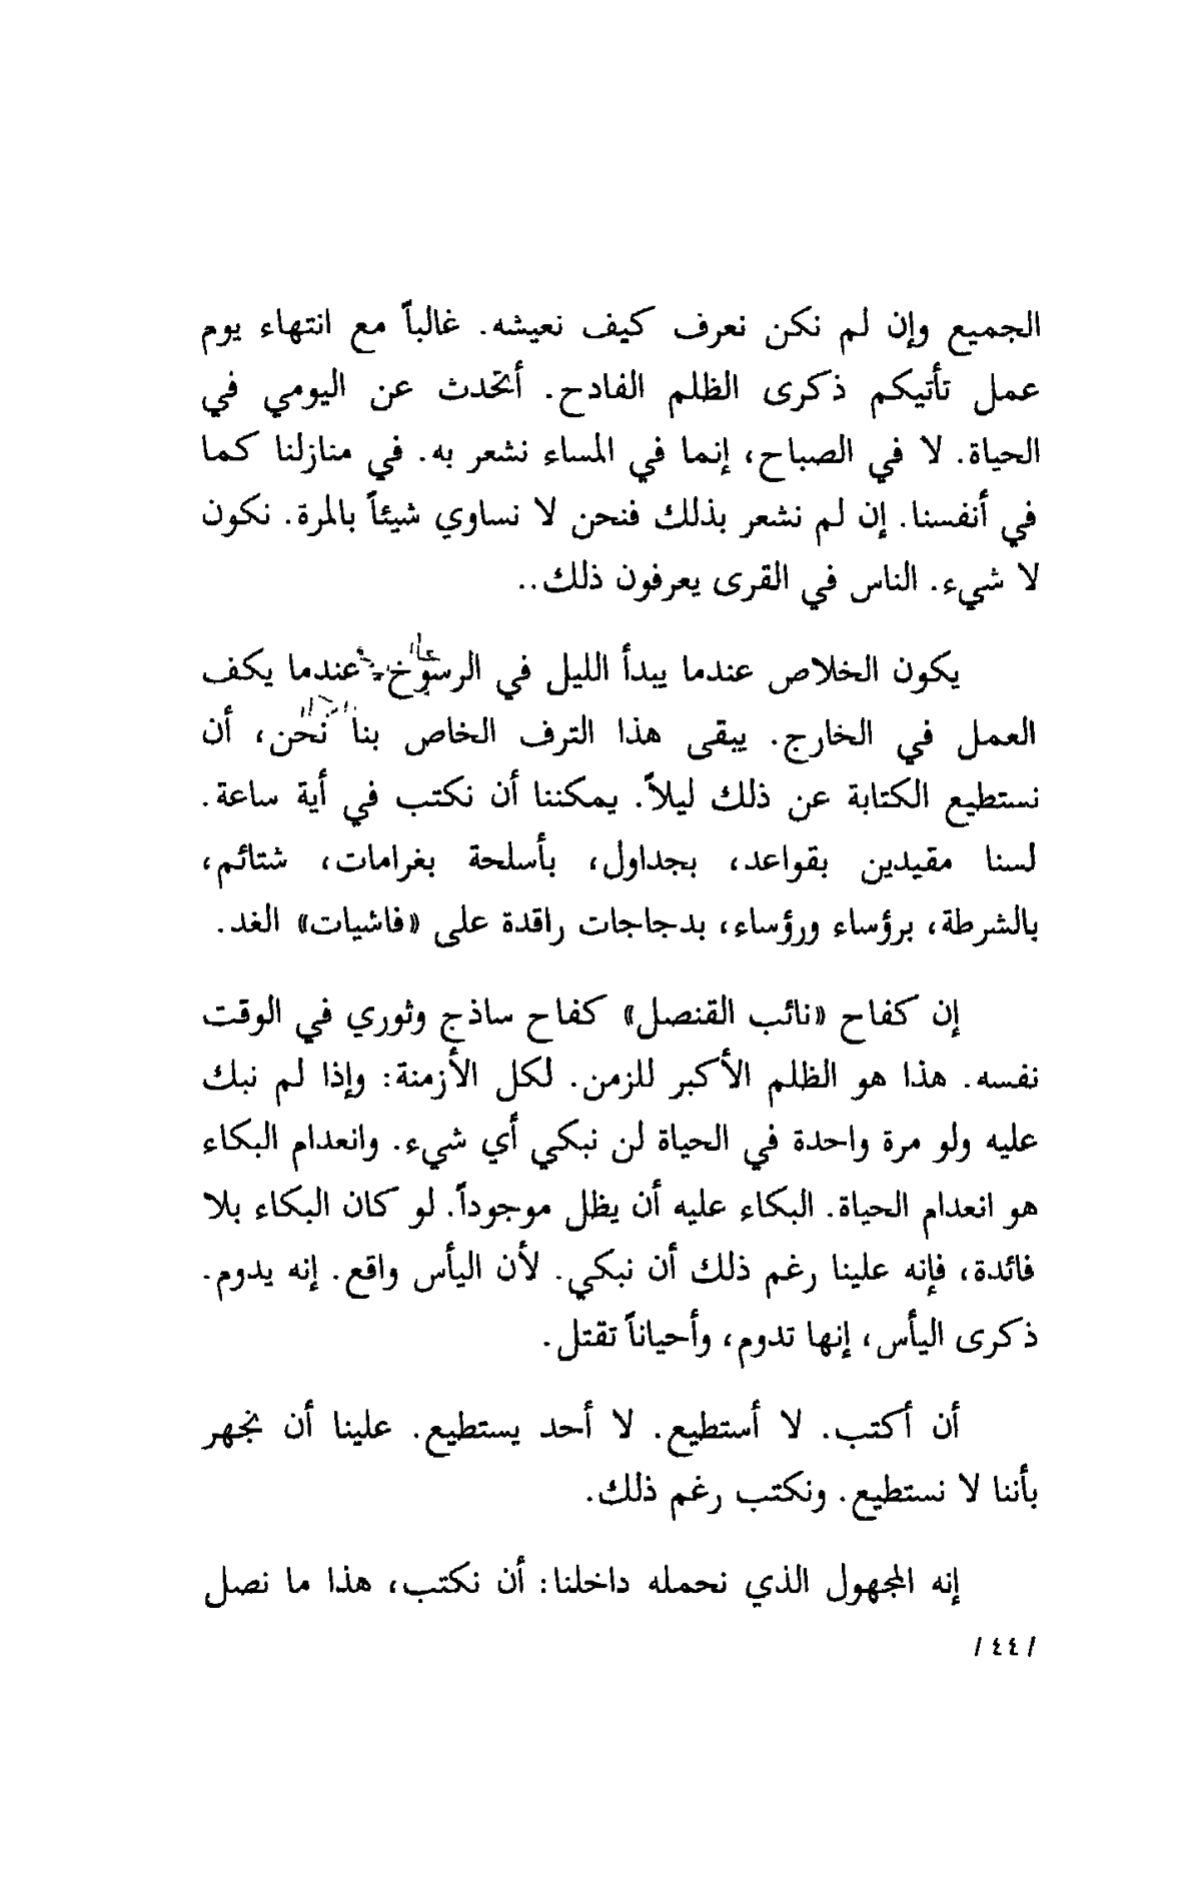 الجميع وإن لم نكن نعرف كيف نعيشه. غالباً مع انتهاء يوم
عمل تأتيكم ذكرى الظلم الفادح. أتحدث عن اليومي في
الحياة. لا في الصباح، إنما في المساء نشعر به. في منازلنا كما
في أنفسنا. إن لم نشعر بذلك فنحن لا نساوي شيئاً بالمرة. نكون
لا شيء. الناس في القرى يعرفون ذلك..
يكون الخلاص عندما يبدأ الليل في الرسوخ. عندما يكف
العمل في الخارج. يبقى هذا الترف الخاص بنا نحن، أن
نستطيع الكتابة عن ذلك ليلاً. يمكننا أن نكتب في أية ساعة.
لسنا مقيدين بقواعد، بجداول، بأسلحة بغرامات، شتائم،
بالشرطة، برؤساء ورؤساء، بدجاجات راقدة على «فاشيات» الغد.
إن كفاح «نائب القنصل» كفاح ساذج وثوري في الوقت
نفسه. هذا هو الظلم الأكبر للزمن. لكل الأزمنة: وإذا لم نبك
عليه ولو مرة واحدة في الحياة لن نبكي أي شيء. وانعدام البكاء
هو انعدام الحياة. البكاء عليه أن يظل موجوداً. لو كان البكاء بلا
فائدة، فإنه علينا رغم ذلك أن نبكي. لأن اليأس واقع. إنه يدوم.
ذكرى اليأس، إنها تدوم، وأحياناً تقتل.
أن أكتب. لا أستطيع. لا أحد يستطيع. علينا أن نجهر
بأننا لا نستطيع. ونكتب رغم ذلك.
إنه المجهول الذي نحمله داخلنا: أن نكتب، هذا ما نصل
/ ٤٤ /